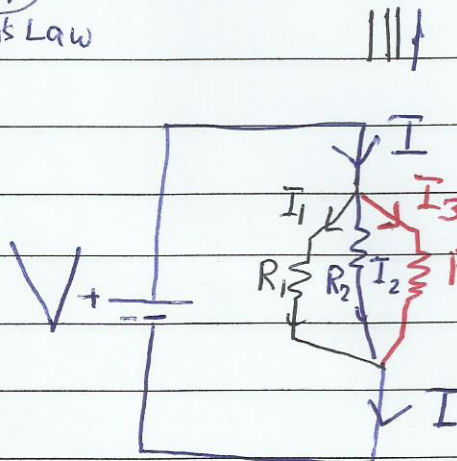 s Law
I
I₁ I₃
V + R₁ R₂ I₂
I